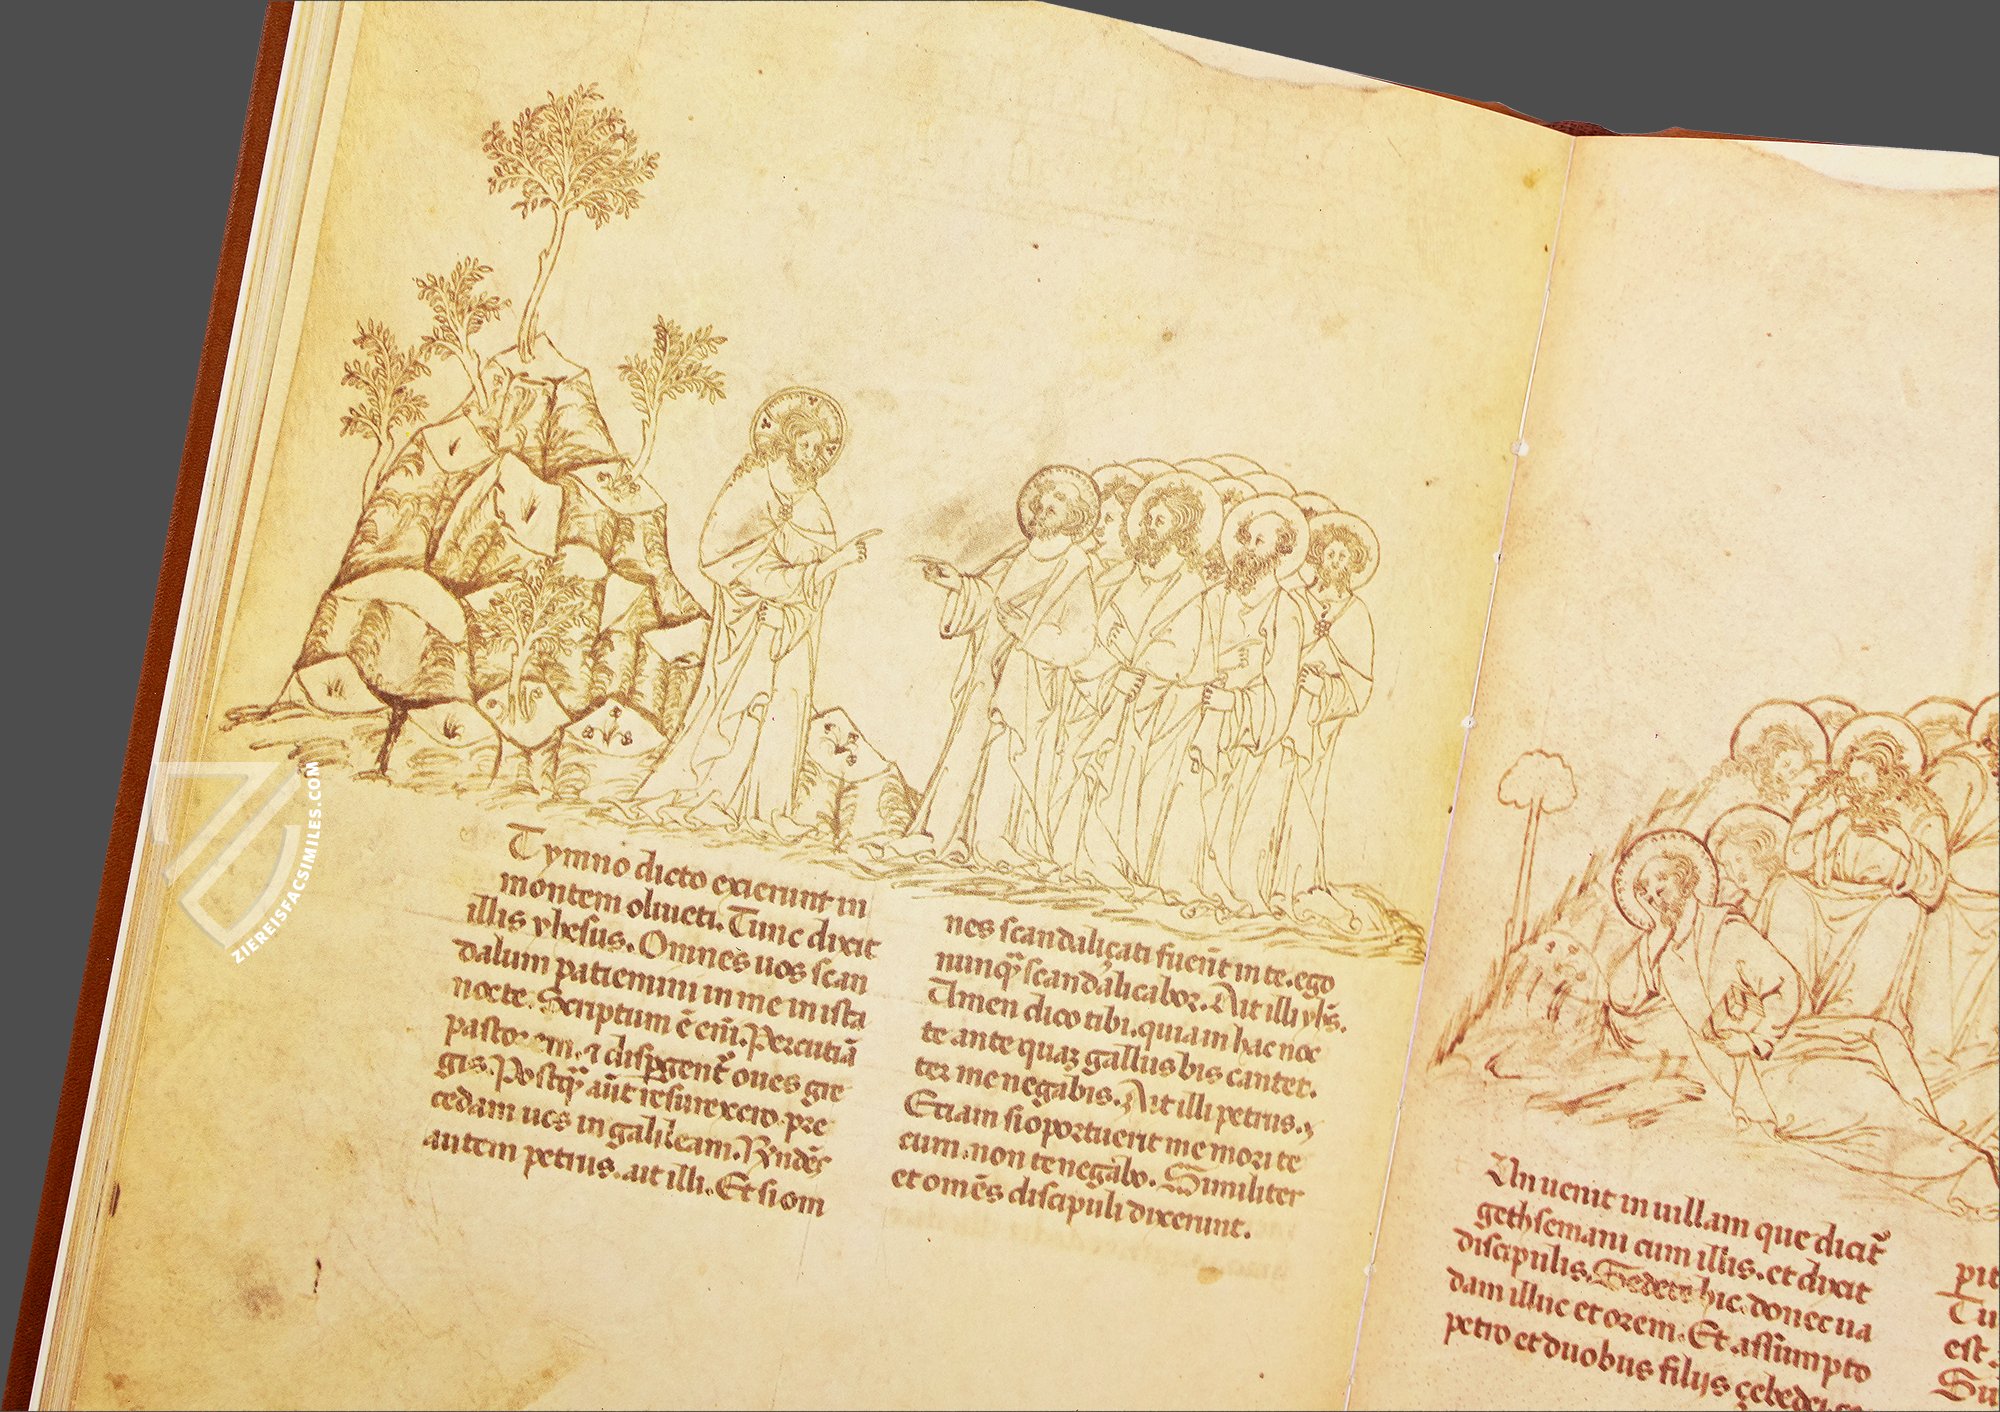 Tymno dicto exierunt in
montem oliueti. Tunc dixit
illis yhesus. Omnes uos scan
dalum patiemini in me in ista
nocte. Scriptum ē eni̅. Percutiā
pastorem. ⁊ dispgent᷑ oues gre
gis. Postqͣ aūt resurrexero. pre
cedam uos in galileam. Rn̄dēs
autem petrus. ait illi. Et si om
nes scandaliçati fuerīt in te. ego
nunqͣ scandalicabor. Ait illi yhs̄.
Amen dico tibi. quia in hac noc
te ante quaꝫ gallus bis cantet.
ter me negabis. Ait illi petrus.
Etiam si oportuerit me mori te
cum. non te negabo. Similiter
et omēs discipuli dixerunt.
Un uenit in uillam que dicit᷑
gethsemani cum illis. et dixit
discipulis. Sedete hic. donec ua
dam illuc et orem. Et assumpto
petro et duobus filijs çebedei.
pit
Tu
est.
Su
ZIEREISFACSIMILES.COM